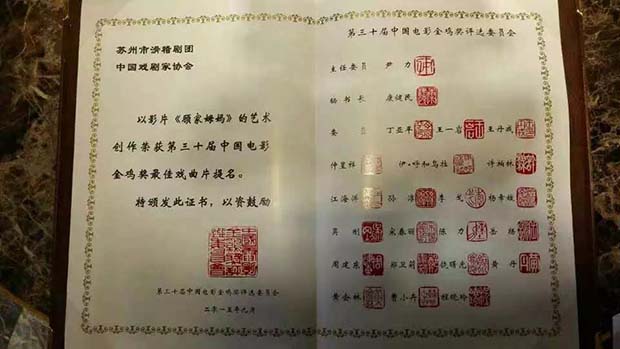 苏州市滑稽剧团
中国戏剧家协会
以影片《顾家姆妈》的艺术
创作荣获第三十届中国电影
金鸡奖最佳戏曲片提名。
特颁发此证书，以资鼓励
第三十届中国电影金鸡奖评选委员会
二〇一五年九月
第三十届中国电影金鸡奖评选委员会
主任委员 尹力
秘书长 康健民
委员 丁亚平 王一岩 王丹戎
仲呈祥 伊·呼和乌拉 许柏林
江海洋 孙淳 李戈 杨幸媛
吴刚 宋春丽 陈力 岳扬
周建东 郑卫莉 饶曙光 黄丹
黄会林 曹小卉 程晓玲